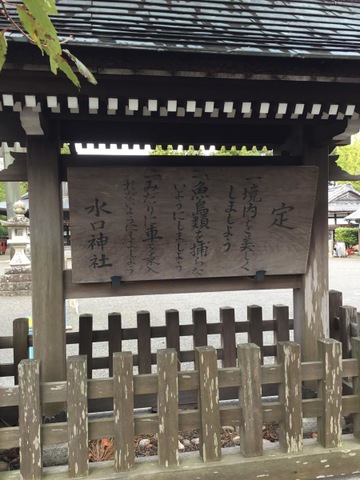 定
一、境内を美しく
しましよう
一、魚鳥類を捕らない
ようにしましよう
一、みだりに車を乗入
れないようにしましよう
水口神社